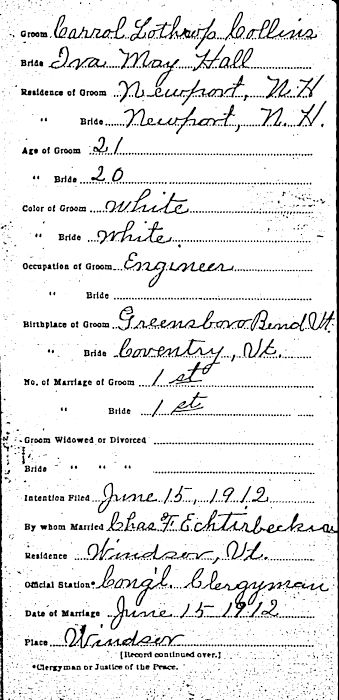 Groom Carrol Lothrop Collins
Bride Iva May Hall
Residence of Groom Newport, N.H
" Bride Newport, N.H.
Age of Groom 21
" Bride 20
Color of Groom White
" Bride White.
Occupation of Groom Engineer
" Bride
Birthplace of Groom Greensboro Bend Vt.
" Bride Coventry, Vt.
No. of Marriage of Groom 1st
" Bride 1st
Groom Widowed or Divorced
Bride " " "
Intention Filed June 15, 1912
By whom Married Chas F.
Residence Windsor, Vt.
Official Station* Cong'l. Clergyman
Date of Marriage June 15 1912
Place Windsor
[Record continued over.]
*Clergyman or Justice of the Peace.